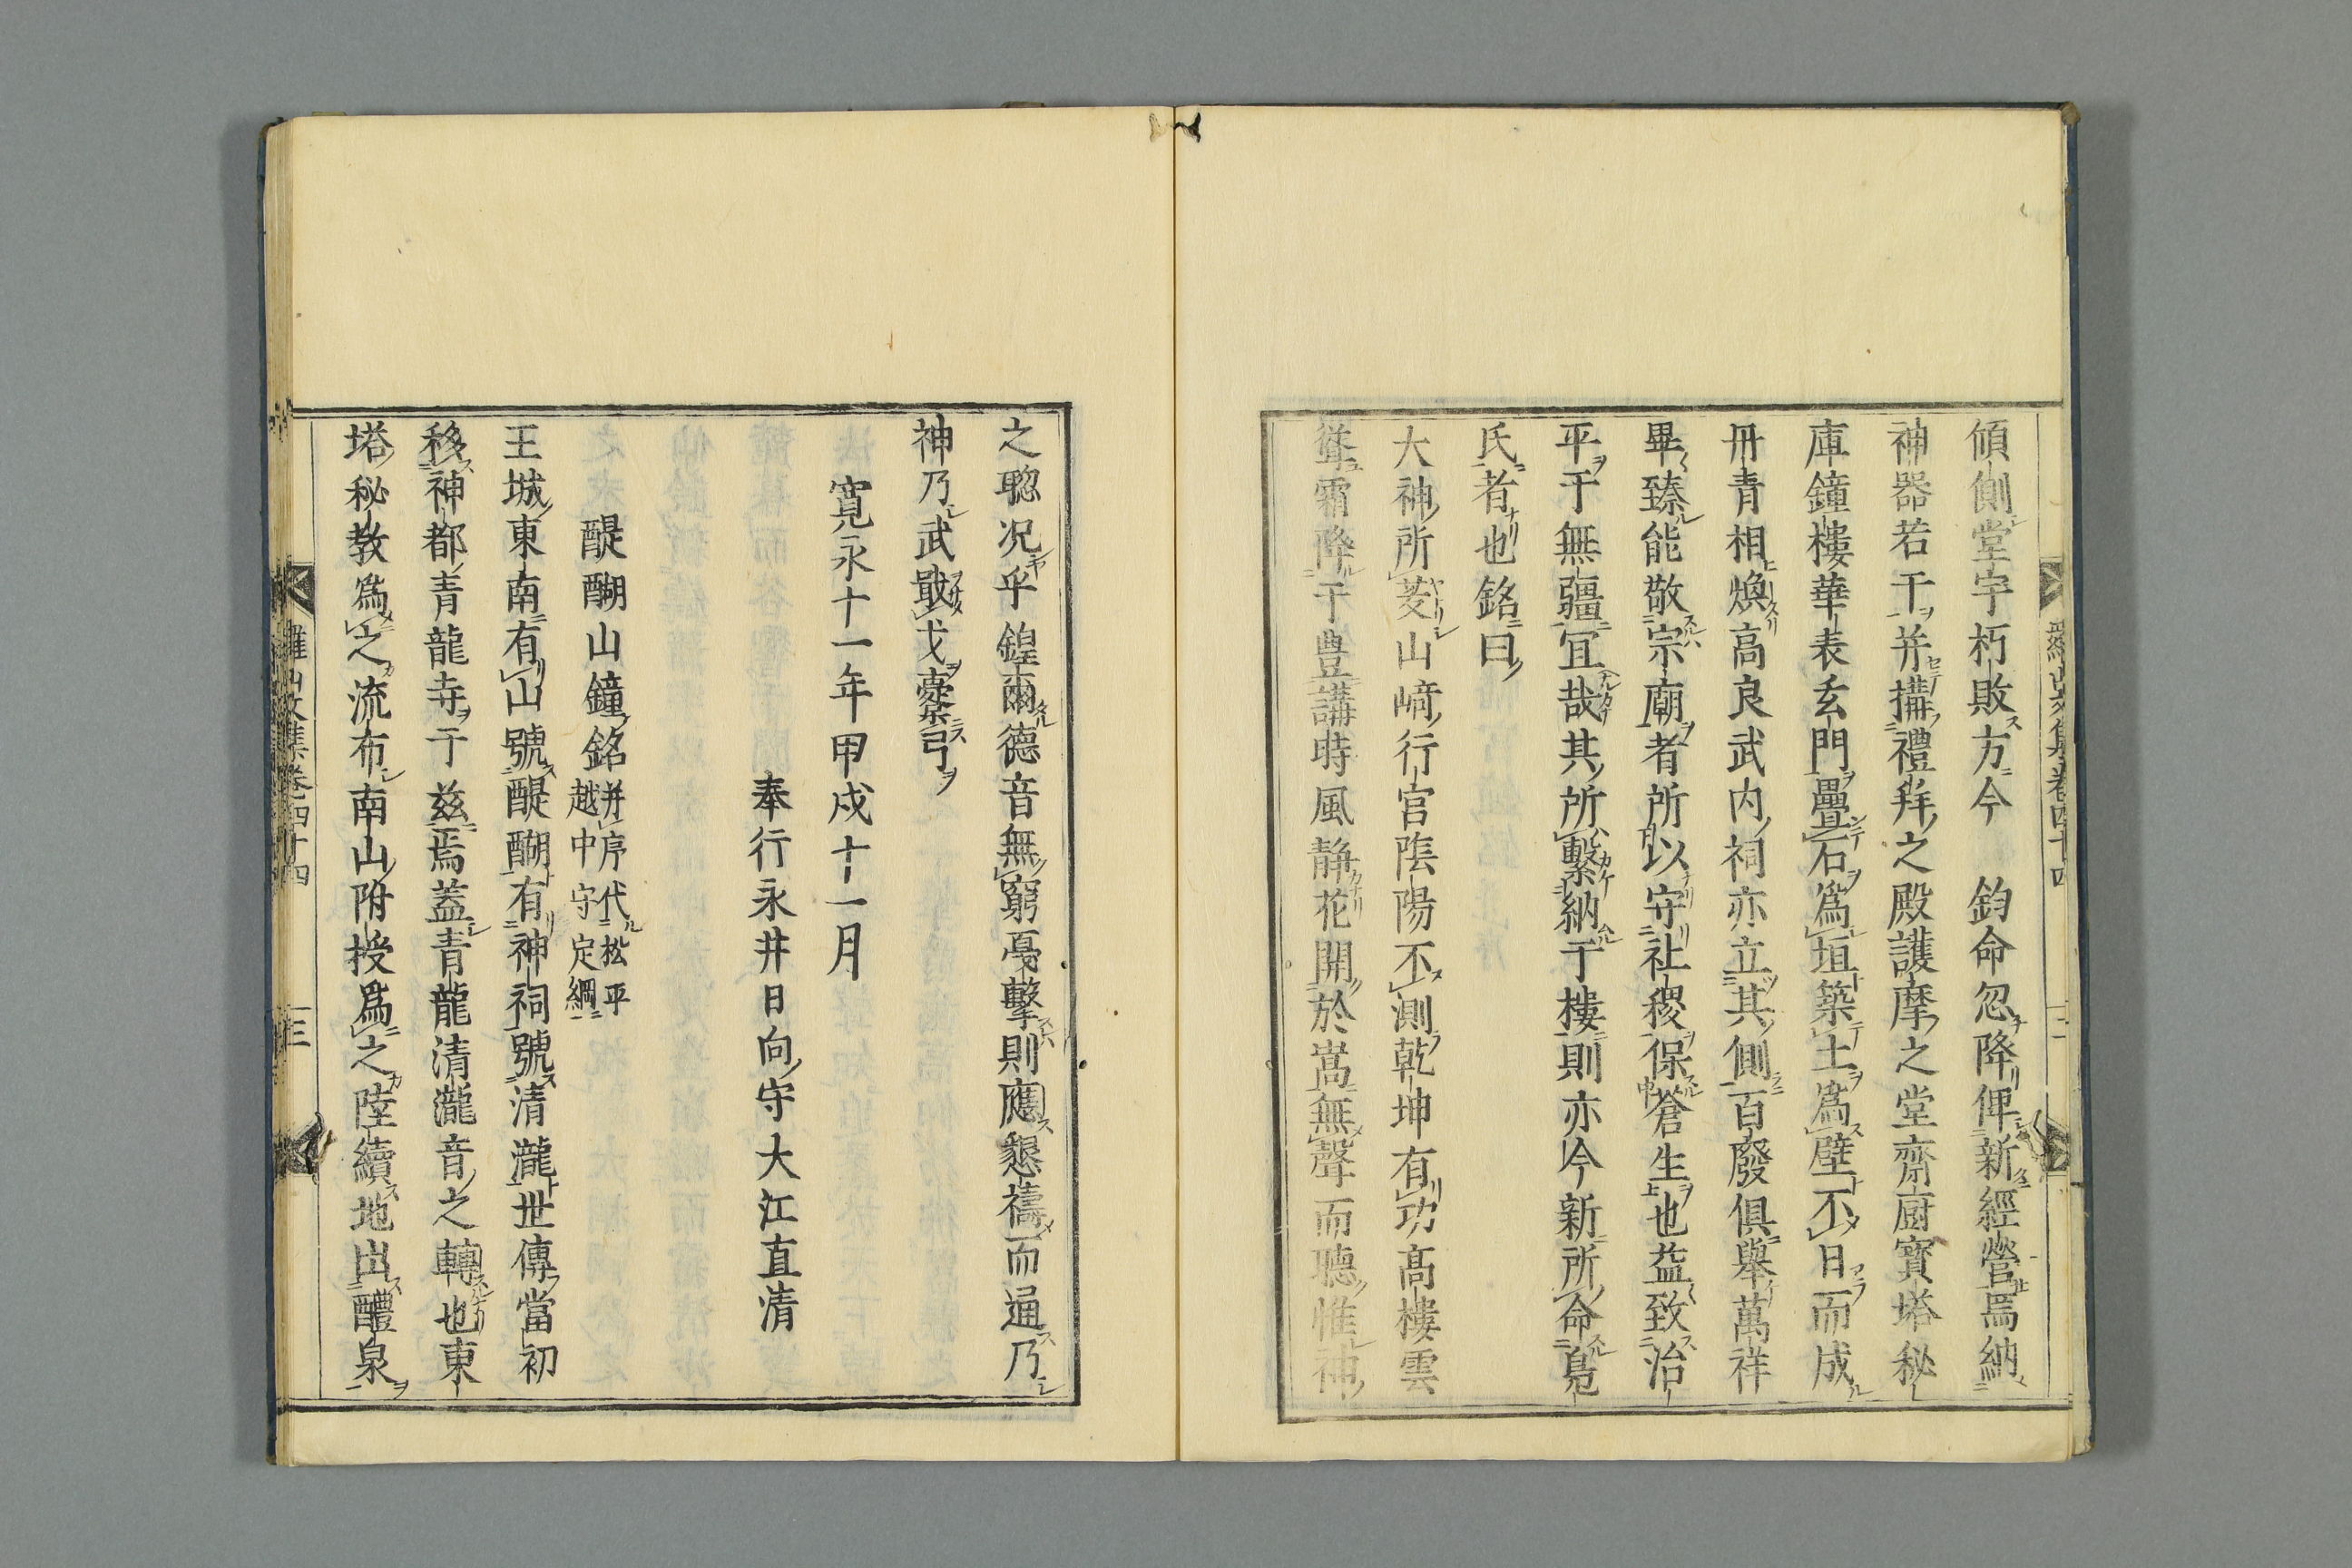 傾側堂宇朽敗方今　鈞命忽降俾新經營焉納
神器若干并搆禮拜之殿護摩之堂齋廚寳塔秘
庫鐘樓華表玄門壘石爲垣築土爲壁不日而成
丹青相煥高良武内祠亦立其側百廢俱舉萬祥
畢臻能敬宗廟者所以守社稷保蒼生也益致治
平于無疆冝哉其所繫納于樓則亦今新所命鳬
氏者也銘曰
大神所茇山﨑行宮陰陽不測乾坤有功髙樓雲
聳霜降于豊講時風静花開於嵩無聲而聽惟神
之聦况乎鍠爾德音無窮戞擊則應懇禱而通乃
神乃武戢戈櫜弓
寛永十一年甲戌十一月
奉行永井日向守大江直清
醍醐山鐘銘并序代松平越中守定綱
王城東南有山號醍醐有神祠號清瀧世傳當初
移神都青龍寺于兹焉蓋青龍清瀧音之轉也東
塔秘教爲之流布南山附授爲之陸續地出醴泉
羅山文集卷四十四
三